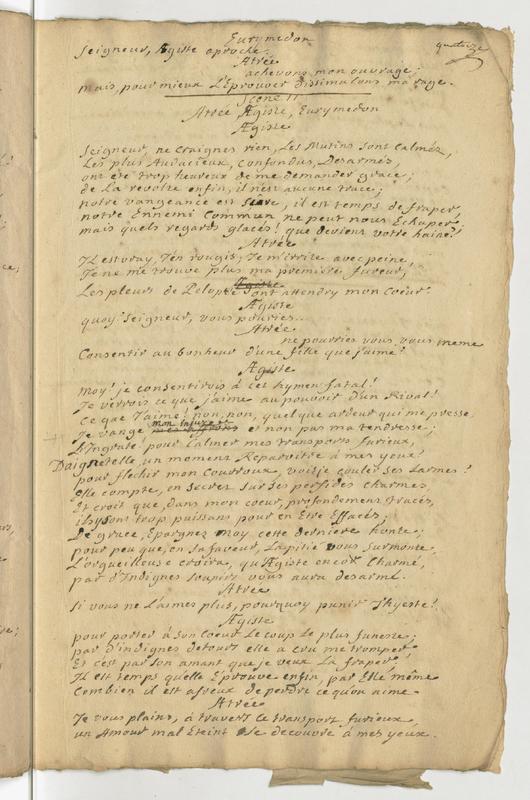 Eurymedon
quatorze
Seigneur, Ægiste aproche.
Atrée
achevons mon ouvrage;
mais, pour mieux L'Eprouver dissimulons ma rage.
Scene II
Atrée Ægiste, Eurymedon
Ægiste
Seigneur, ne Craignez rien, Les Mutins sont Calméz,
Les plus Audacieux, Confondus, Desarmés,
ont été trop heureux de me demander grace;
de La revolte enfin, il n'est aucune trace;
notre vangeance est sure, il est temps de fraper,
notre Ennemi Commun ne peut nous Echaper;
mais quels regards glacés! que devient votre haine?
Atrée
Il est vray, J'en rougis, Je m'irrite avec peine,
Je ne me trouve plus ma premiere fureur;
Les pleurs de Pelopée ont attendry mon Coeur
Ægiste
quoy! Seigneur, vous pouriés..
Atrée
ne pourries vous, vous meme
Consentir au bonheur d'une fille que j'aime?
Ægiste
Moy! je consentirois à cet hymen fatal!
Je verrois ce que j'aime au pouvoir d'un Rival!
Ce que J'aime! non, non, quelque ardeur qui me presse,
Je vange mon injure et non pas ma tendresse;
L'Ingrate! pour Calmer mes transports furieux,
Daignetelle un moment Reparoitre à mes yeux?
pour flechir mon Courroux, vois je couler ses Larmes?
Elle compte, en secret sur ses perfides charmes,
Et croit que, dans mon coeur, profondement tracés,
ils y sont trop puissans pour en Etre Effacés;
De grace, Epargnez moy cette derniere honte;
pour peu que, en sa faveur, La pitié vous surmonte,
L'orgueilleuse croira, qu'Ægiste encor Charmé,
par d'Indignes soupirs vous aura desarmé.
Atrée
Si vous ne L'aimes plus, pourquoy punir Thyeste?
Ægiste
pour porter à son Coeur Le coup Le plus funeste;
par d'indignes detours elle a cru me tromper,
Et c'est par son amant que je veux La fraper;
Il est temps qu'elle Eprouve enfin, par Elle même
Combien il est afreux de perdre ce qu'on aime
Atrée
Je vous plains, à travers ce transport furieux,
un Amour mal Eteint se decouvre à mes yeux.